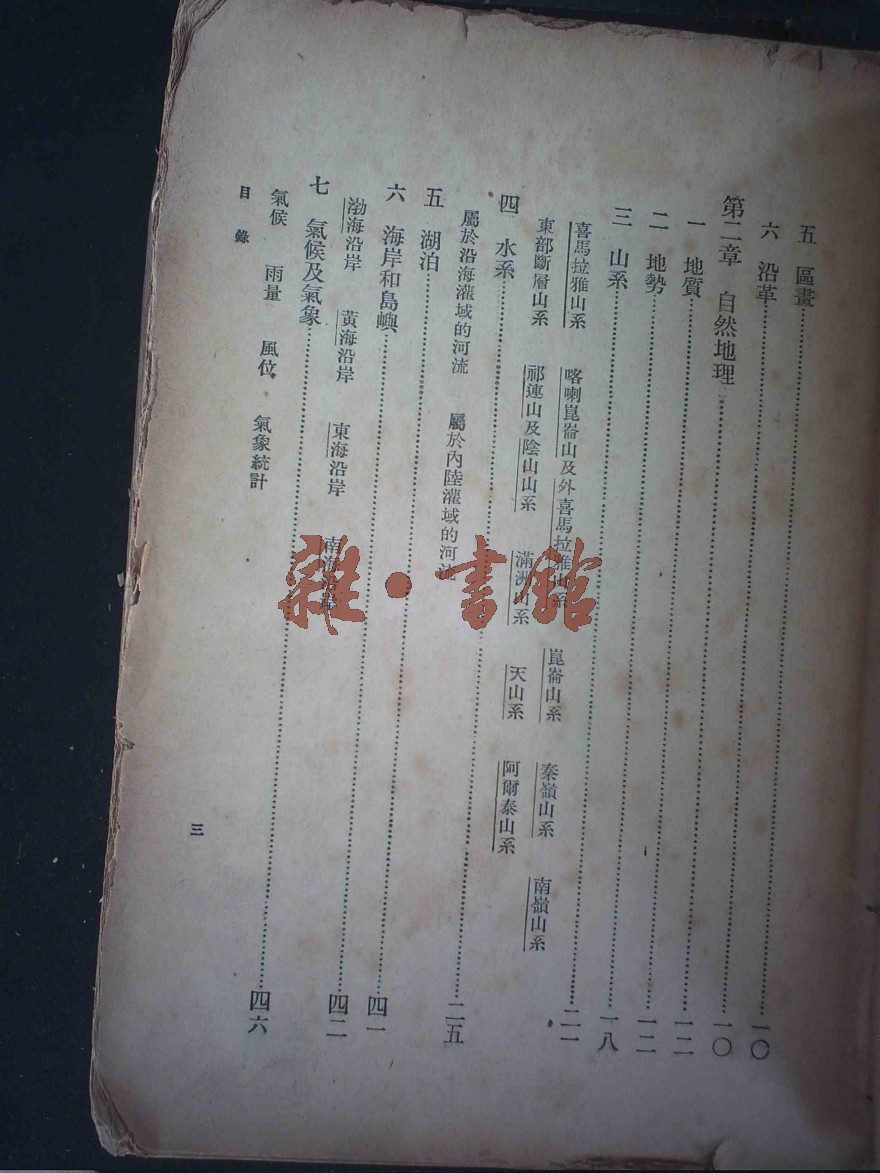 五　區畫……一〇
六　沿革……一〇
第二章　自然地理……一二
一　地質……一二
二　地勢……一八
三　山系……二一
喜馬拉雅山系　喀喇崑崙山及外喜馬拉雅山系　崑崙山系　秦嶺山系　南嶺山系
東部斷層山系　祁連山及陰山山系　滿洲山系　天山系　阿爾泰山系
四　水系……二五
屬於沿海灌域的河流　屬於內陸灌域的河流
五　湖泊……四一
六　海岸和島嶼……四二
渤海沿岸　黃海沿岸　東海沿岸　南海沿岸
七　氣候及氣象……四六
氣候　雨量　風位　氣象統計
目錄
三
雜·書館